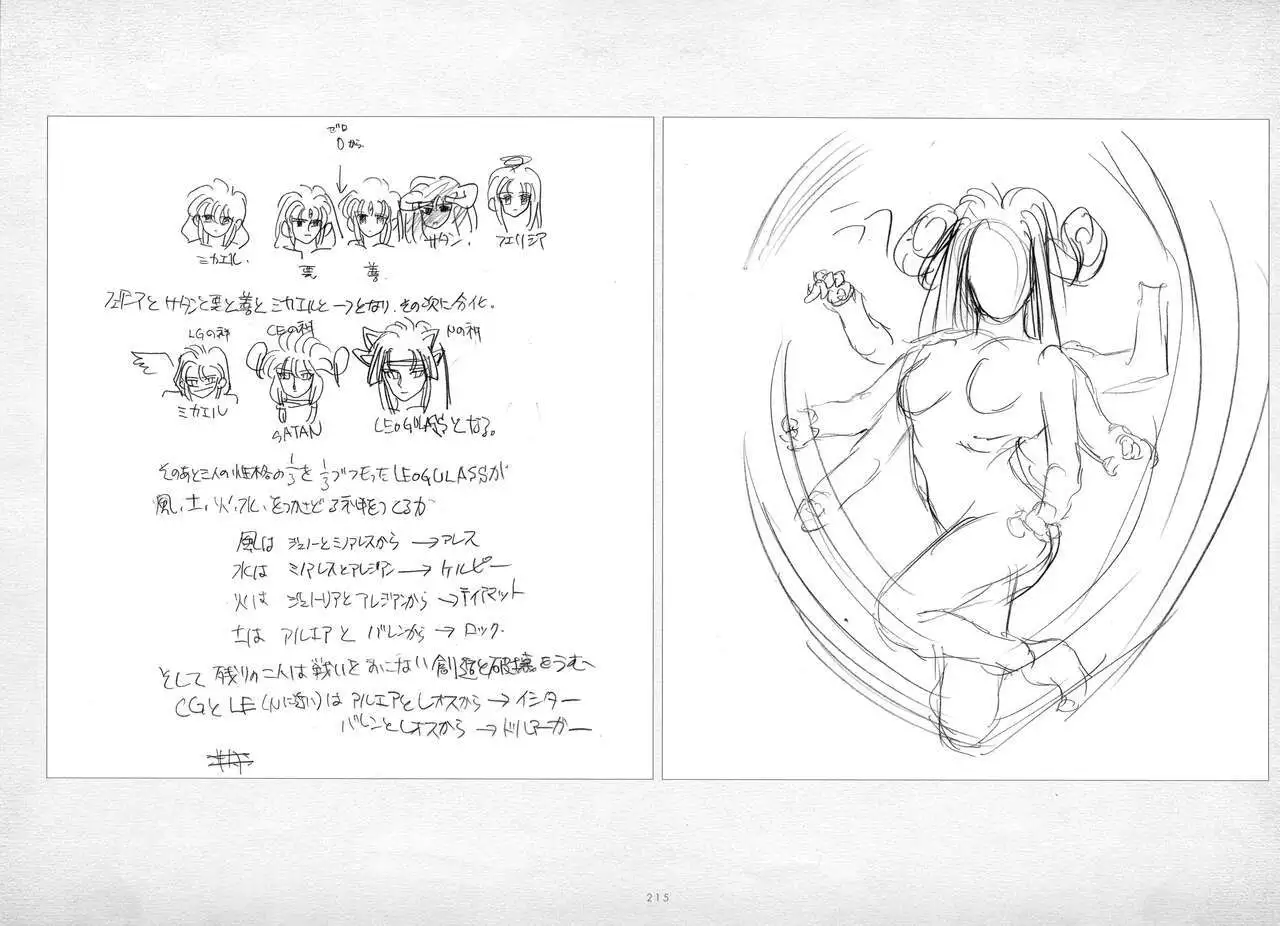 ゼロ
0から
ミカエル.
悪
善.
サタン.
フェリシア
フェリシアとサタンと悪と善とミカエルと一つとなり、その次に分化。
LGの神
CEの神
Nの神
ミカエル
SATAN
LEOGULASSとなる。
そのあと三人の性格の1/3を1/3づつもったLEOGULASSが
風、土、火、水、をつかさどる神をつくるが
風は ジュノーとミノアレスから→アレス
水は ミノアレスとアレジアン→ケルピー
火は ジュノートリアとアレジアンから→ティアマット
土は アルエアと バレンから→ロック.
そして残りの二人は戦いをおこない創造と破壊をうむ
CGとLE(Nに近い)は アルエアとレオスから→イシター
バレンとレオスから→ドルアーガー
215